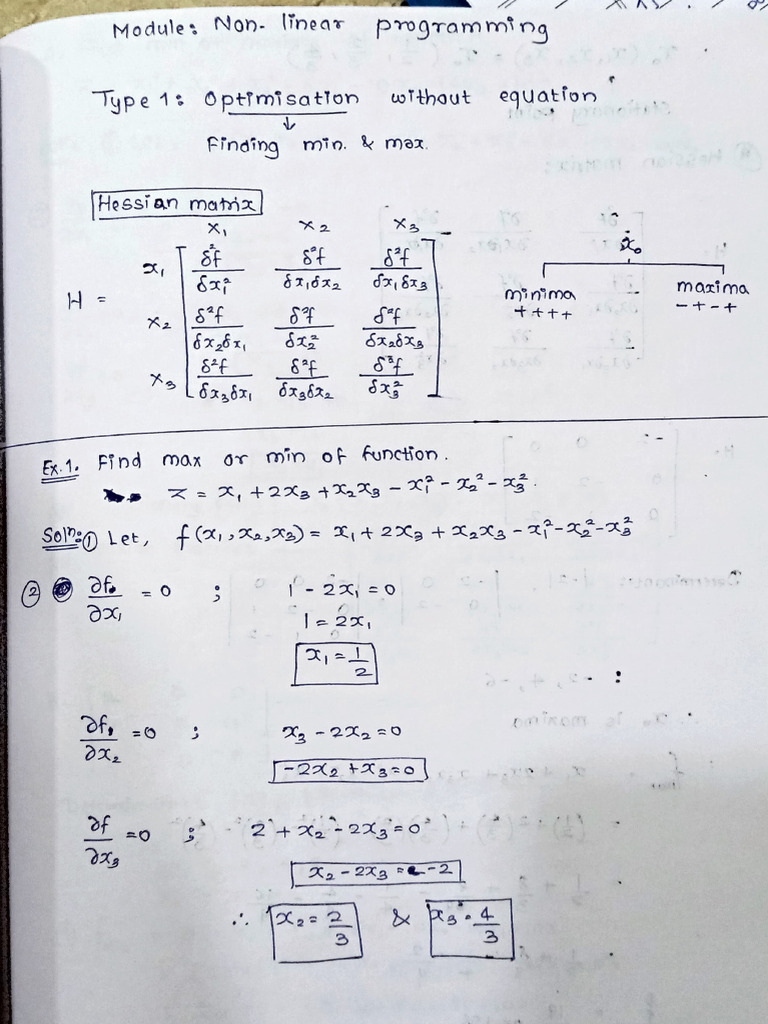 Module: Non-linear programming
Type 1: Optimisation without equation
↓
Finding min. & max.
Hessian matrix
x₁ x₂ x₃
H =
x₁ δ²f/δx₁² δ²f/δx₁δx₂ δ²f/δx₁δx₃
x₂ δ²f/δx₂δx₁ δ²f/δx₂² δ²f/δx₂δx₃
x₃ δ²f/δx₃δx₁ δ²f/δx₃δx₂ δ³f/δx₃²
x₀
minima maxima
++++ -+-+
Ex.1. Find max or min of function.
z = x₁ + 2x₃ + x₂x₃ - x₁² - x₂² - x₃².
Solⁿ: ① Let, f(x₁, x₂, x₃) = x₁ + 2x₃ + x₂x₃ - x₁² - x₂² - x₃²
② ∂f/∂x₁ = 0 ; 1 - 2x₁ = 0
1 = 2x₁
x₁ = 1/2
∂f/∂x₂ = 0 ; x₃ - 2x₂ = 0
-2x₂ + x₃ = 0
∂f/∂x₃ = 0 ; 2 + x₂ - 2x₃ = 0
x₂ - 2x₃ = -2
∴ x₂ = 2/3 & x₃ = 4/3